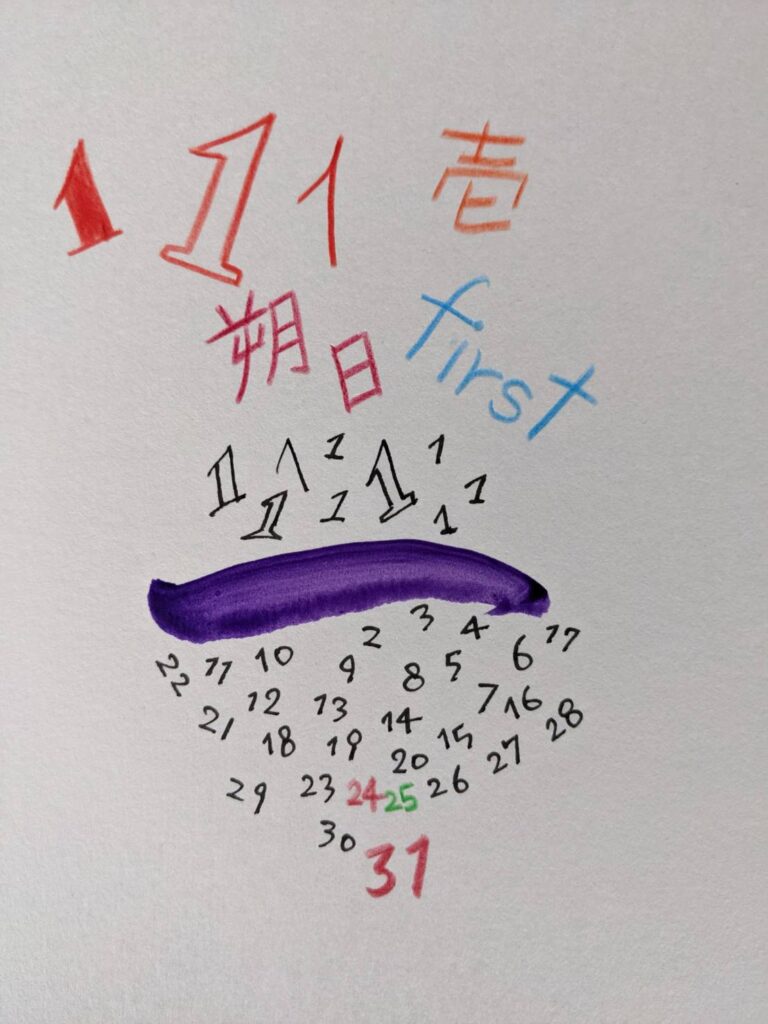 1 1 1 壱
朔日 first
1 1 1 1 1
1 1 1 1
2 3 4
22 11 10 9 8 5 6 17
21 12 13 14 7 16
18 19 20 15 27 28
29 23 24 25 26
30 31